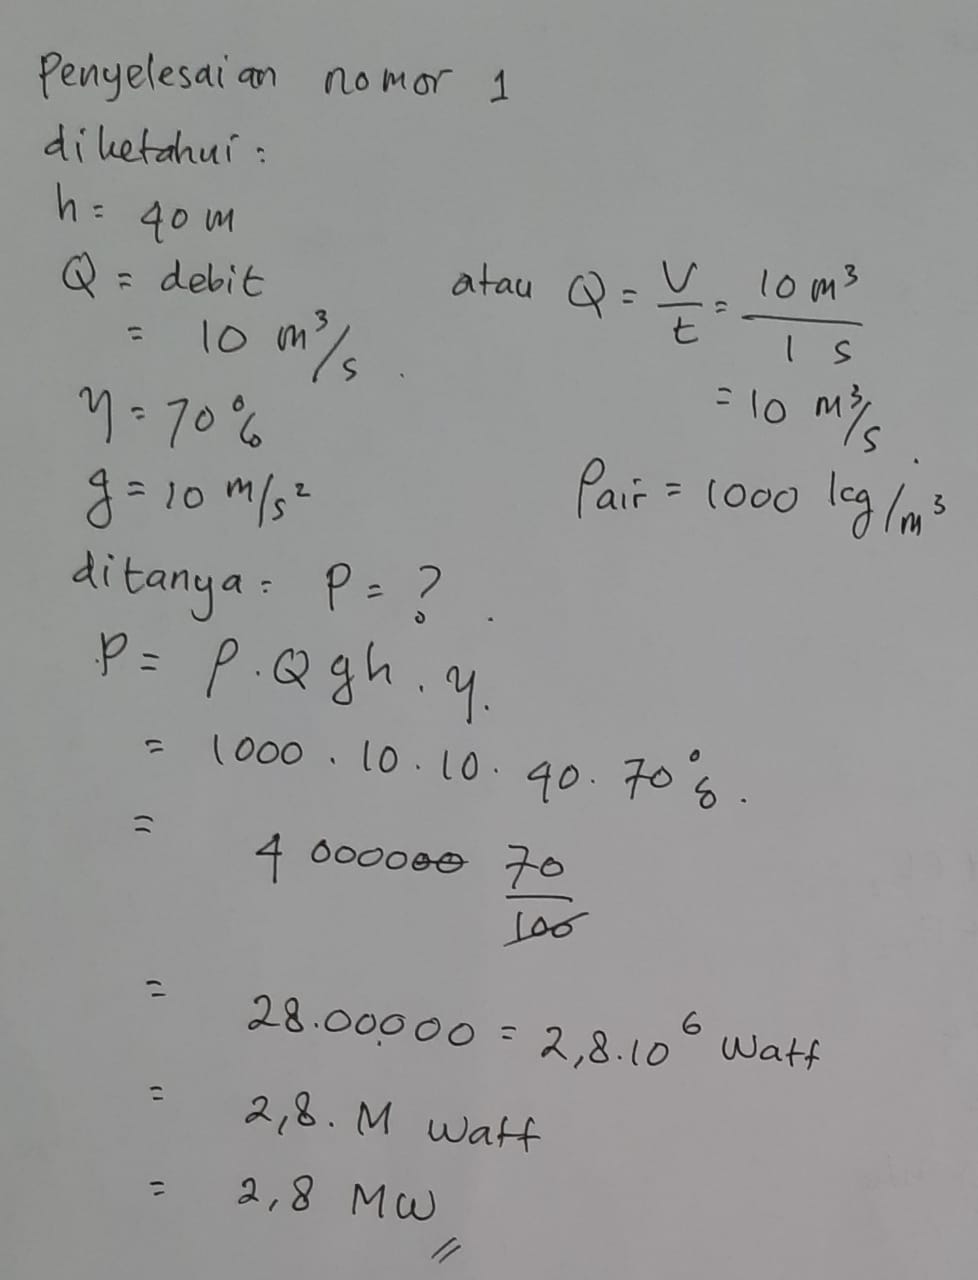 Penyelesaian nomor 1
diketahui:
h = 40 m
Q = debit
= 10 m³/s.
atau Q = V/t = 10 m³/1 s
= 10 m³/s.
η = 70%
g = 10 m/s²
ρair = 1000 kg/m³
ditanya = P = ?.
P = ρ.Q gh . η.
= 1000 . 10 . 10 . 40 . 70%.
= 4 000000 70/100
= 28.00000 = 2,8.10⁶ Watt
= 2,8. M Watt
= 2,8 MW //